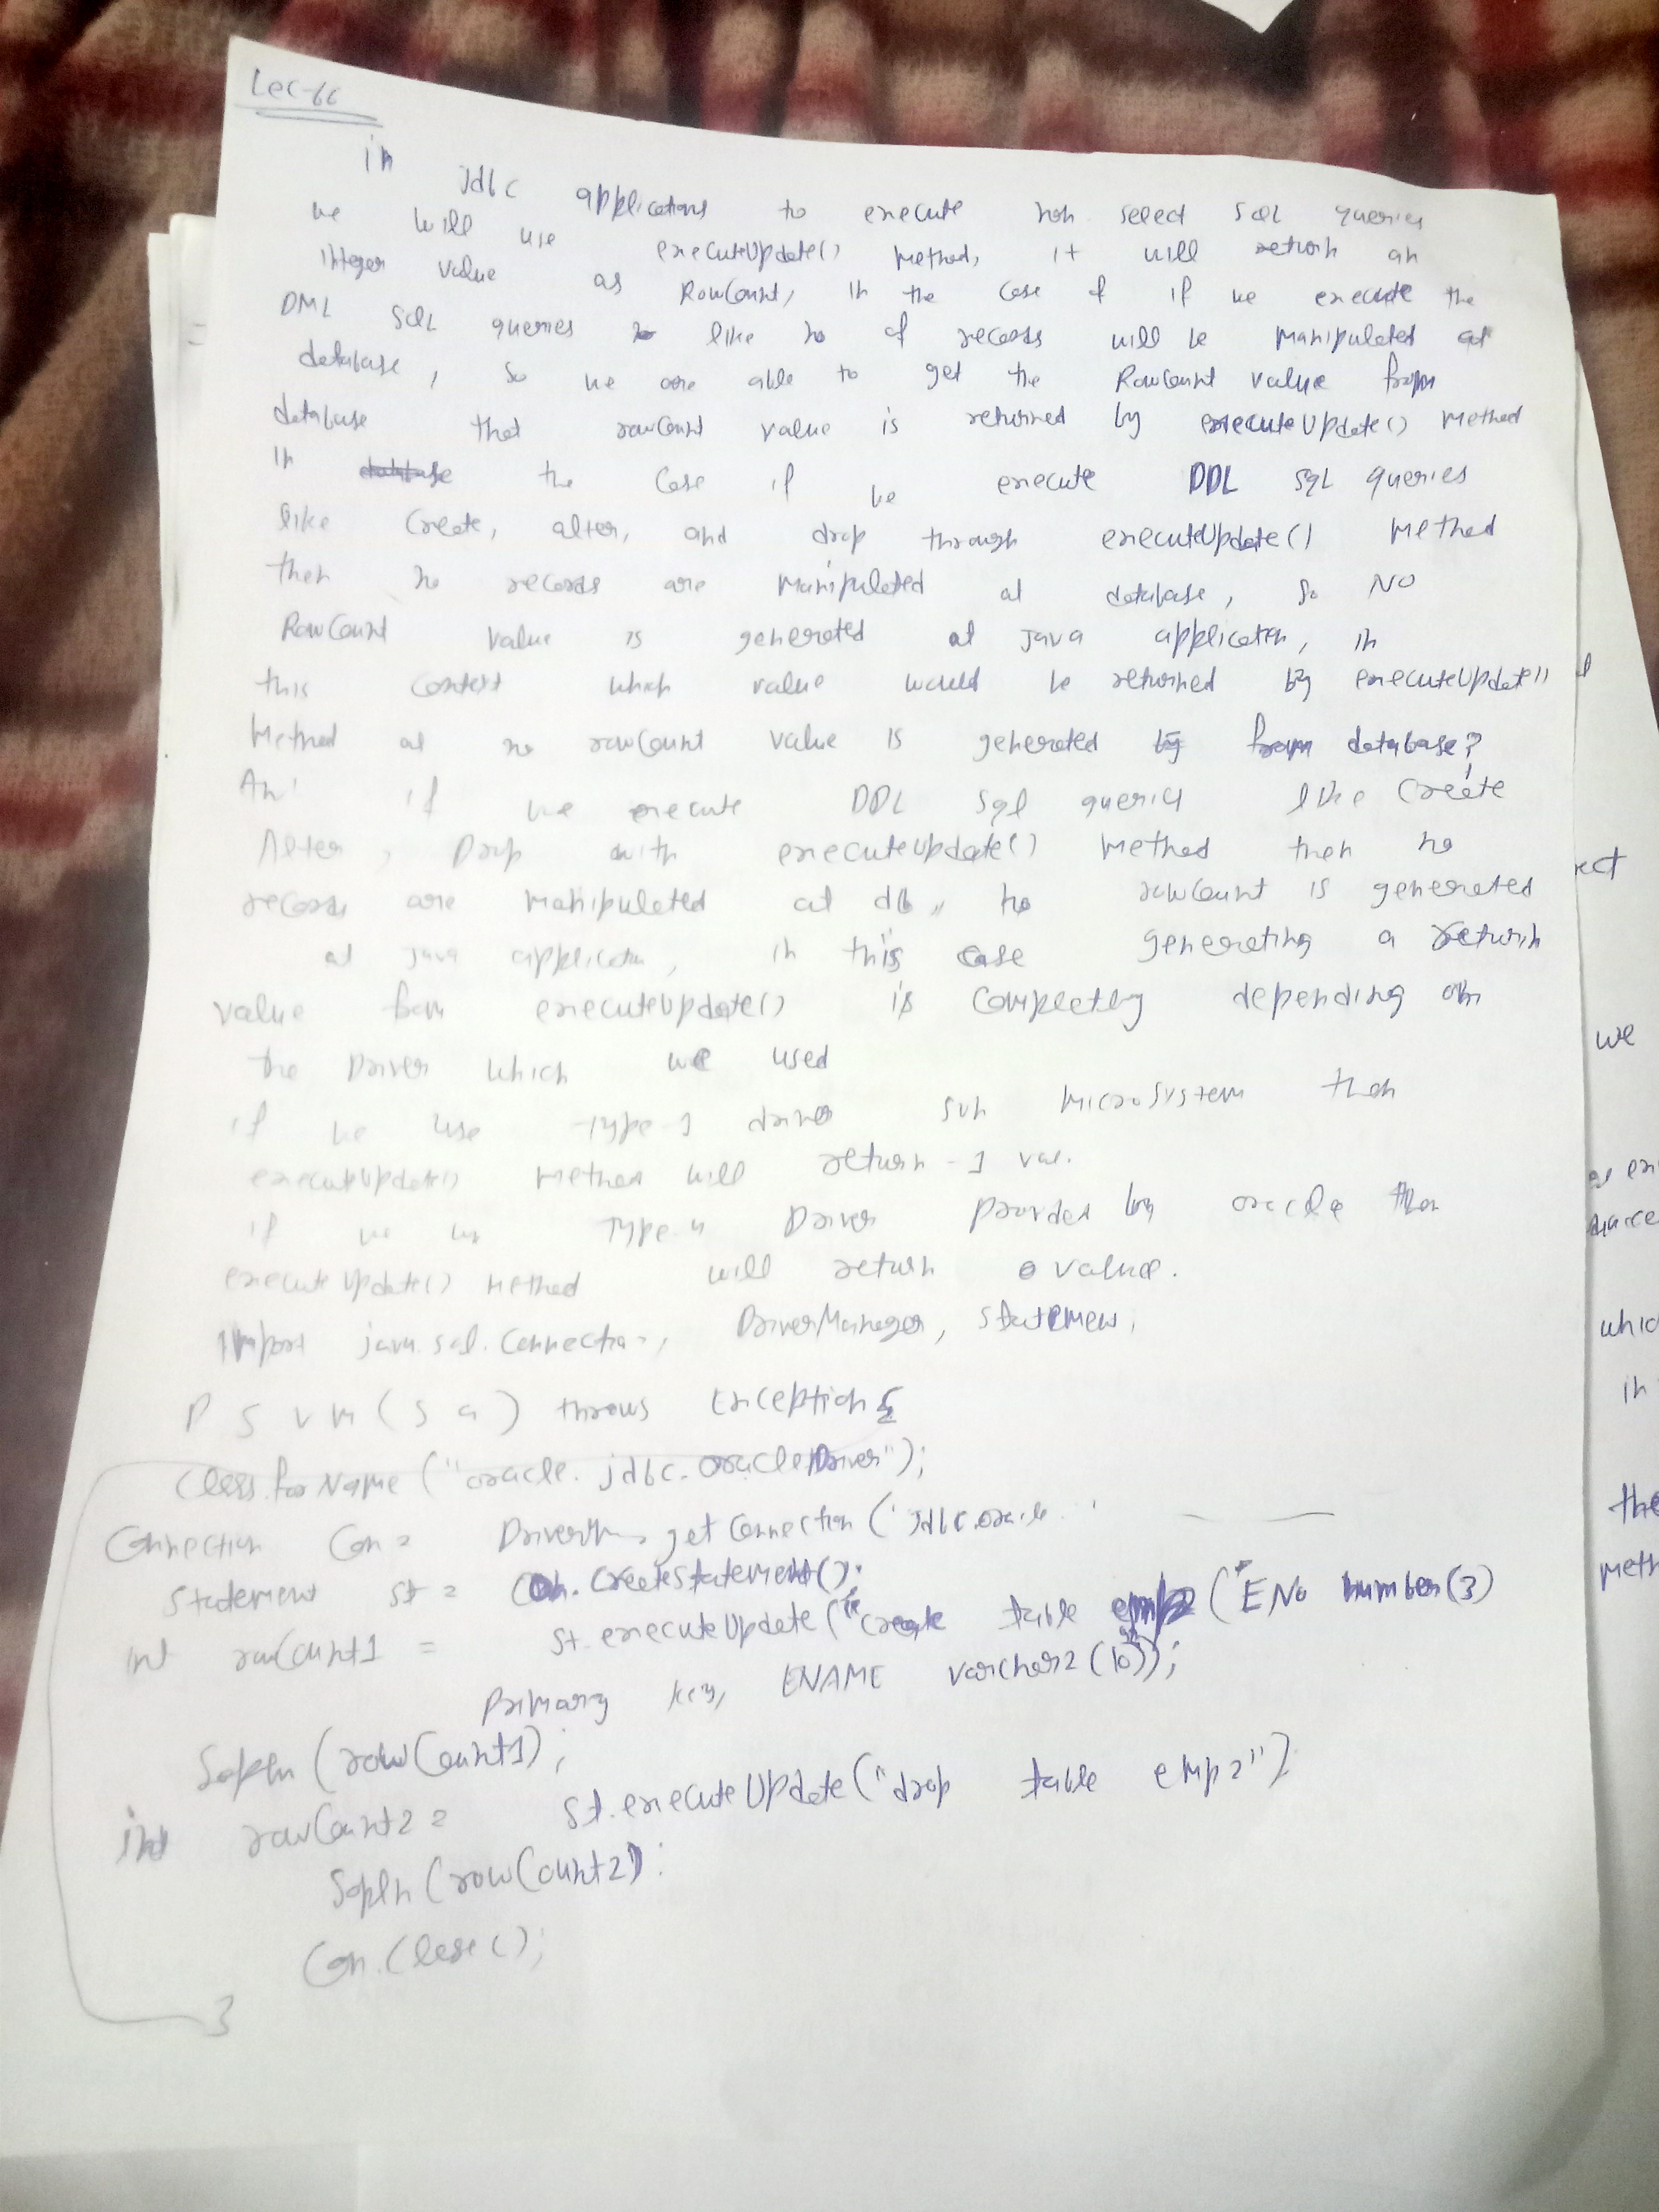 Lec-66
in Jdbc applications to execute non select SQL queries
we will use executeUpdate() Method, it will return an
integer value as RowCount, in the case of if we execute the
DML SQL queries like no of records will be manipulated at
database, so we are able to get the RowCount value from
database that rowCount value is returned by executeUpdate() Method
In the case if we execute DDL SQL queries
like Create, alter, and drop through executeUpdate() Method
then no records are manipulated at database, so NO
RowCount value is generated at java application, in
this context which value would be returned by executeUpdate()
Method at no rowCount value is generated from database?
An' if we execute DDL sql queries like Create
Alter, Drop with executeUpdate() Method then no
records are manipulated at db, no rowCount is generated
at java application, in this case generating a return
value from executeUpdate() is completly depending on
the Driver which we used
if we use type-1 driver sun microsystem then
executeUpdate() Method will return -1 val.
if we us Type-4 Driver provided by oracle then
executeUpdate() Method will return 0 value.
import java.sql.Connection, DriverManager, statement,
P S V M (S a) throws Exception {
Class.forName ("oracle.jdbc.OracleDriver");
Connection Con = getConnection ('Jdbc.oracle
Statement st = Con.CreateStatement();
int rowCount1 = st.executeUpdate ("create table emp2 ( ENo number(3)
Primary key, ENAME varchar2 (10)");
Sopln (rowCount1);
int rowCount2 = st.executeUpdate ("drop table emp2");
Sopln (rowCount2);
Con.Close ();
}
ect
we
which
in
the
meth